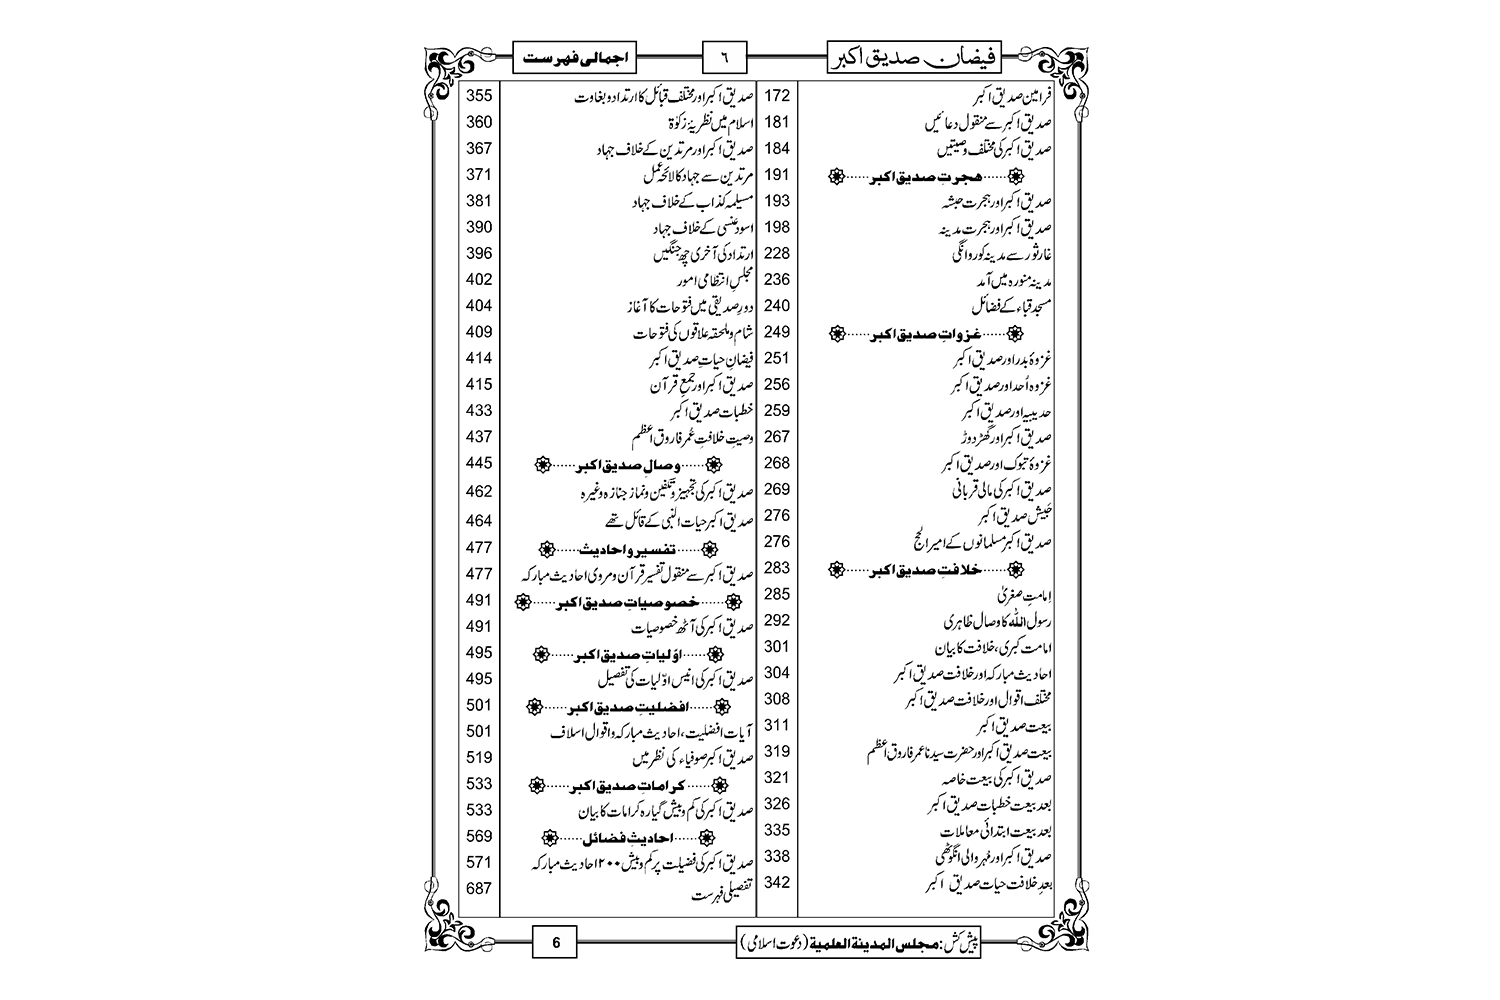 فیضانِ صدیق اکبر
٦
اجمالی فہرست
فرامین صدیق اکبر 172
صدیق اکبر سے منقول دعائیں 181
صدیق اکبر کی مختلف وصیتیں 184
ھجرتِ صدیق اکبر...... 191
صدیق اکبر اور ہجرت حبشہ 193
صدیق اکبر اور ہجرت مدینہ 198
غار ثور سے مدینہ کو روانگی 228
مدینہ منورہ میں آمد 236
مسجد قباء کے فضائل 240
......غزواتِ صدیق اکبر...... 249
غزوۂ بدر اور صدیق اکبر 251
غزوہ اُحد اور صدیق اکبر 256
حدیبیہ اور صدیق اکبر 259
صدیق اکبر اور گھڑ دوڑ 267
غزوۂ تبوک اور صدیق اکبر 268
صدیق اکبر کی مالی قربانی 269
جَیش صدیق اکبر 276
صدیق اکبر مسلمانوں کے امیر الحج 276
......خلافتِ صدیق اکبر...... 283
اِمامتِ صغریٰ 285
رسول اللہ کا وصال ظاہری 292
امامت کبری، خلافت کا بیان 301
احادیث مبارکہ اور خلافت صدیق اکبر 304
مختلف اقوال اور خلافت صدیق اکبر 308
بیعت صدیق اکبر 311
بیعت صدیق اکبر اور حضرت سیدنا عمر فاروق اعظم 319
صدیق اکبر کی بیعت خاصہ 321
بعد بیعت خطبات صدیق اکبر 326
بعد بیعت ابتدائی معاملات 335
صدیق اکبر اور مُہر والی انگوٹھی 338
بعدِ خلافت حیات صدیق اکبر 342
صدیق اکبر اور مختلف قبائل کا ارتداد و بغاوت 355
اسلام میں نظریۂ زکوٰۃ 360
صدیق اکبر اور مرتدین کے خلاف جہاد 367
مرتدین سے جہاد کا لائحہ عمل 371
مسیلمہ کذاب کے خلاف جہاد 381
اسود عَنسی کے خلاف جہاد 390
ارتداد کی آخری چھ جنگیں 396
مجلسِ انتظامی امور 402
دورِ صدیقی میں فتوحات کا آغاز 404
شام و ملحقہ علاقوں کی فتوحات 409
فیضانِ حیاتِ صدیق اکبر 414
صدیق اکبر اور جمعِ قرآن 415
خطبات صدیق اکبر 433
وصیتِ خلافتِ عُمر فاروق اعظم 437
......وصالِ صدیق اکبر...... 445
صدیق اکبر کی تجہیز و تکفین و نماز جنازہ وغیرہ 462
صدیق اکبر حیات النبی کے قائل تھے 464
......تفسیر و احادیث...... 477
صدیق اکبر سے منقول تفسیر قرآن و مروی احادیث مبارکہ 477
......خصوصیاتِ صدیق اکبر...... 491
صدیق اکبر کی آٹھ خصوصیات 491
......اوّلیاتِ صدیق اکبر...... 495
صدیق اکبر کی انیس اوّلیات کی تفصیل 495
......افضلیتِ صدیق اکبر...... 501
آیات افضلیت، احادیث مبارکہ و اقوال اسلاف 501
صدیق اکبر صوفیاء کی نظر میں 519
......کراماتِ صدیق اکبر...... 533
صدیق اکبر کی کم و بیش گیارہ کرامات کا بیان 533
......احادیثِ فضائل...... 569
صدیق اکبر کی فضیلت پر کم و بیش ۲۰۰ احادیث مبارکہ 571
تفصیلی فہرست 687
پیش کش: مجلس المدینۃ العلمیۃ (دعوت اسلامی)
6